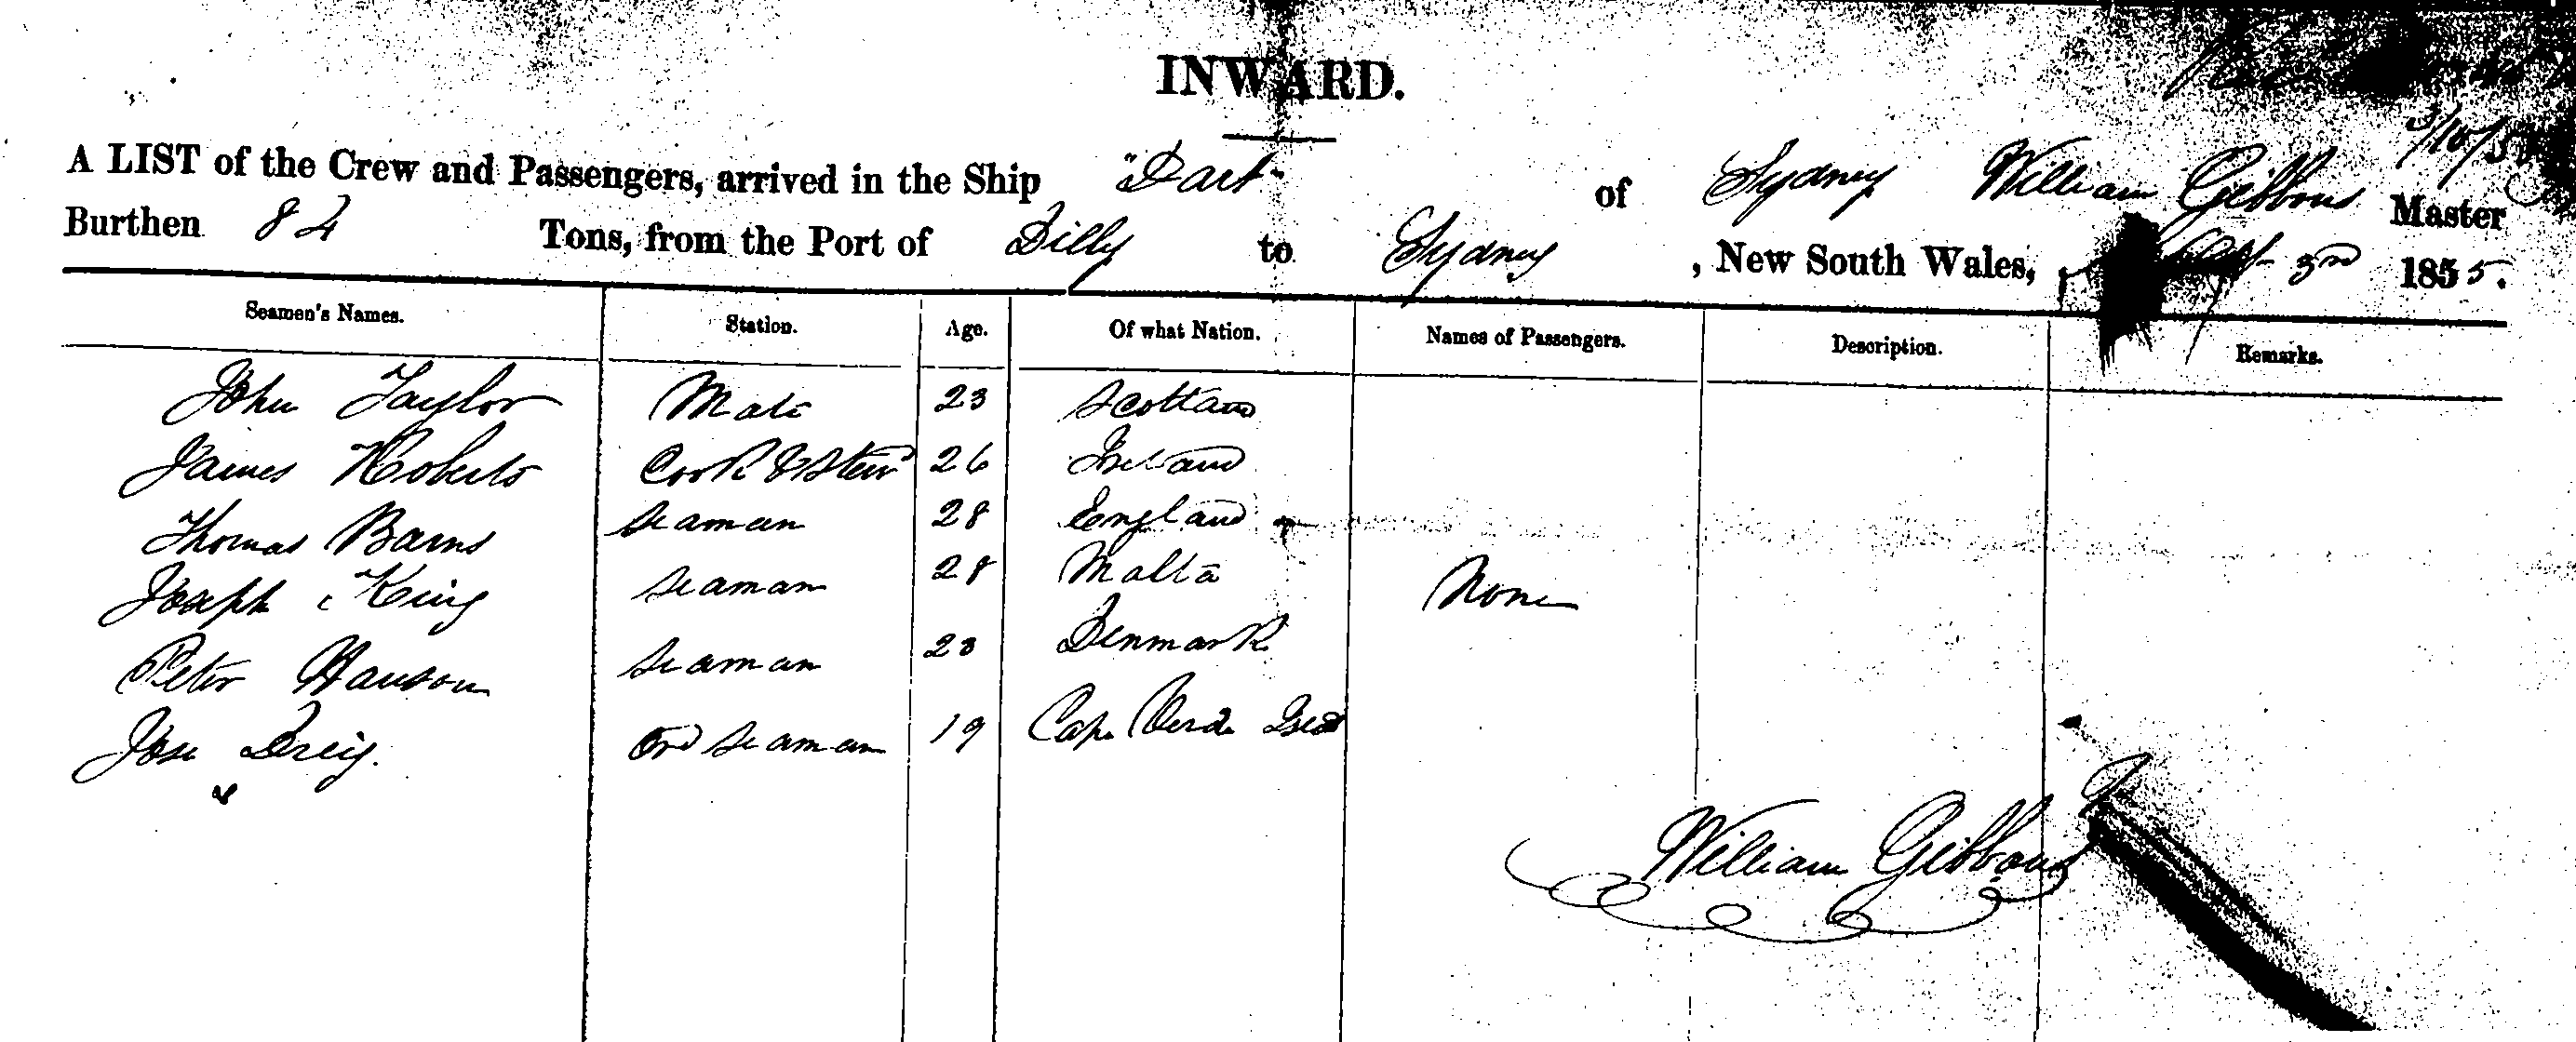 INWARD.
A LIST of the Crew and Passengers, arrived in the Ship "Dart" of Sydney William Gibbons Master
Burthen 82 Tons, from the Port of Dilly to Sydney, New South Wales, 3rd 1855.
Seamen's Names. Station. Age. Of what Nation. Names of Passengers. Description. Remarks.
John Taylor Mate 23 Scotland
James Roberts Cook & Stewd 26 Ireland
Thomas Barns Seaman 28 England
Joseph King Seaman 28 Malta None
Peter Hanson Seaman 23 Denmark
Jose Ord Seaman 19 Cape Verde Isd
William Gibbons